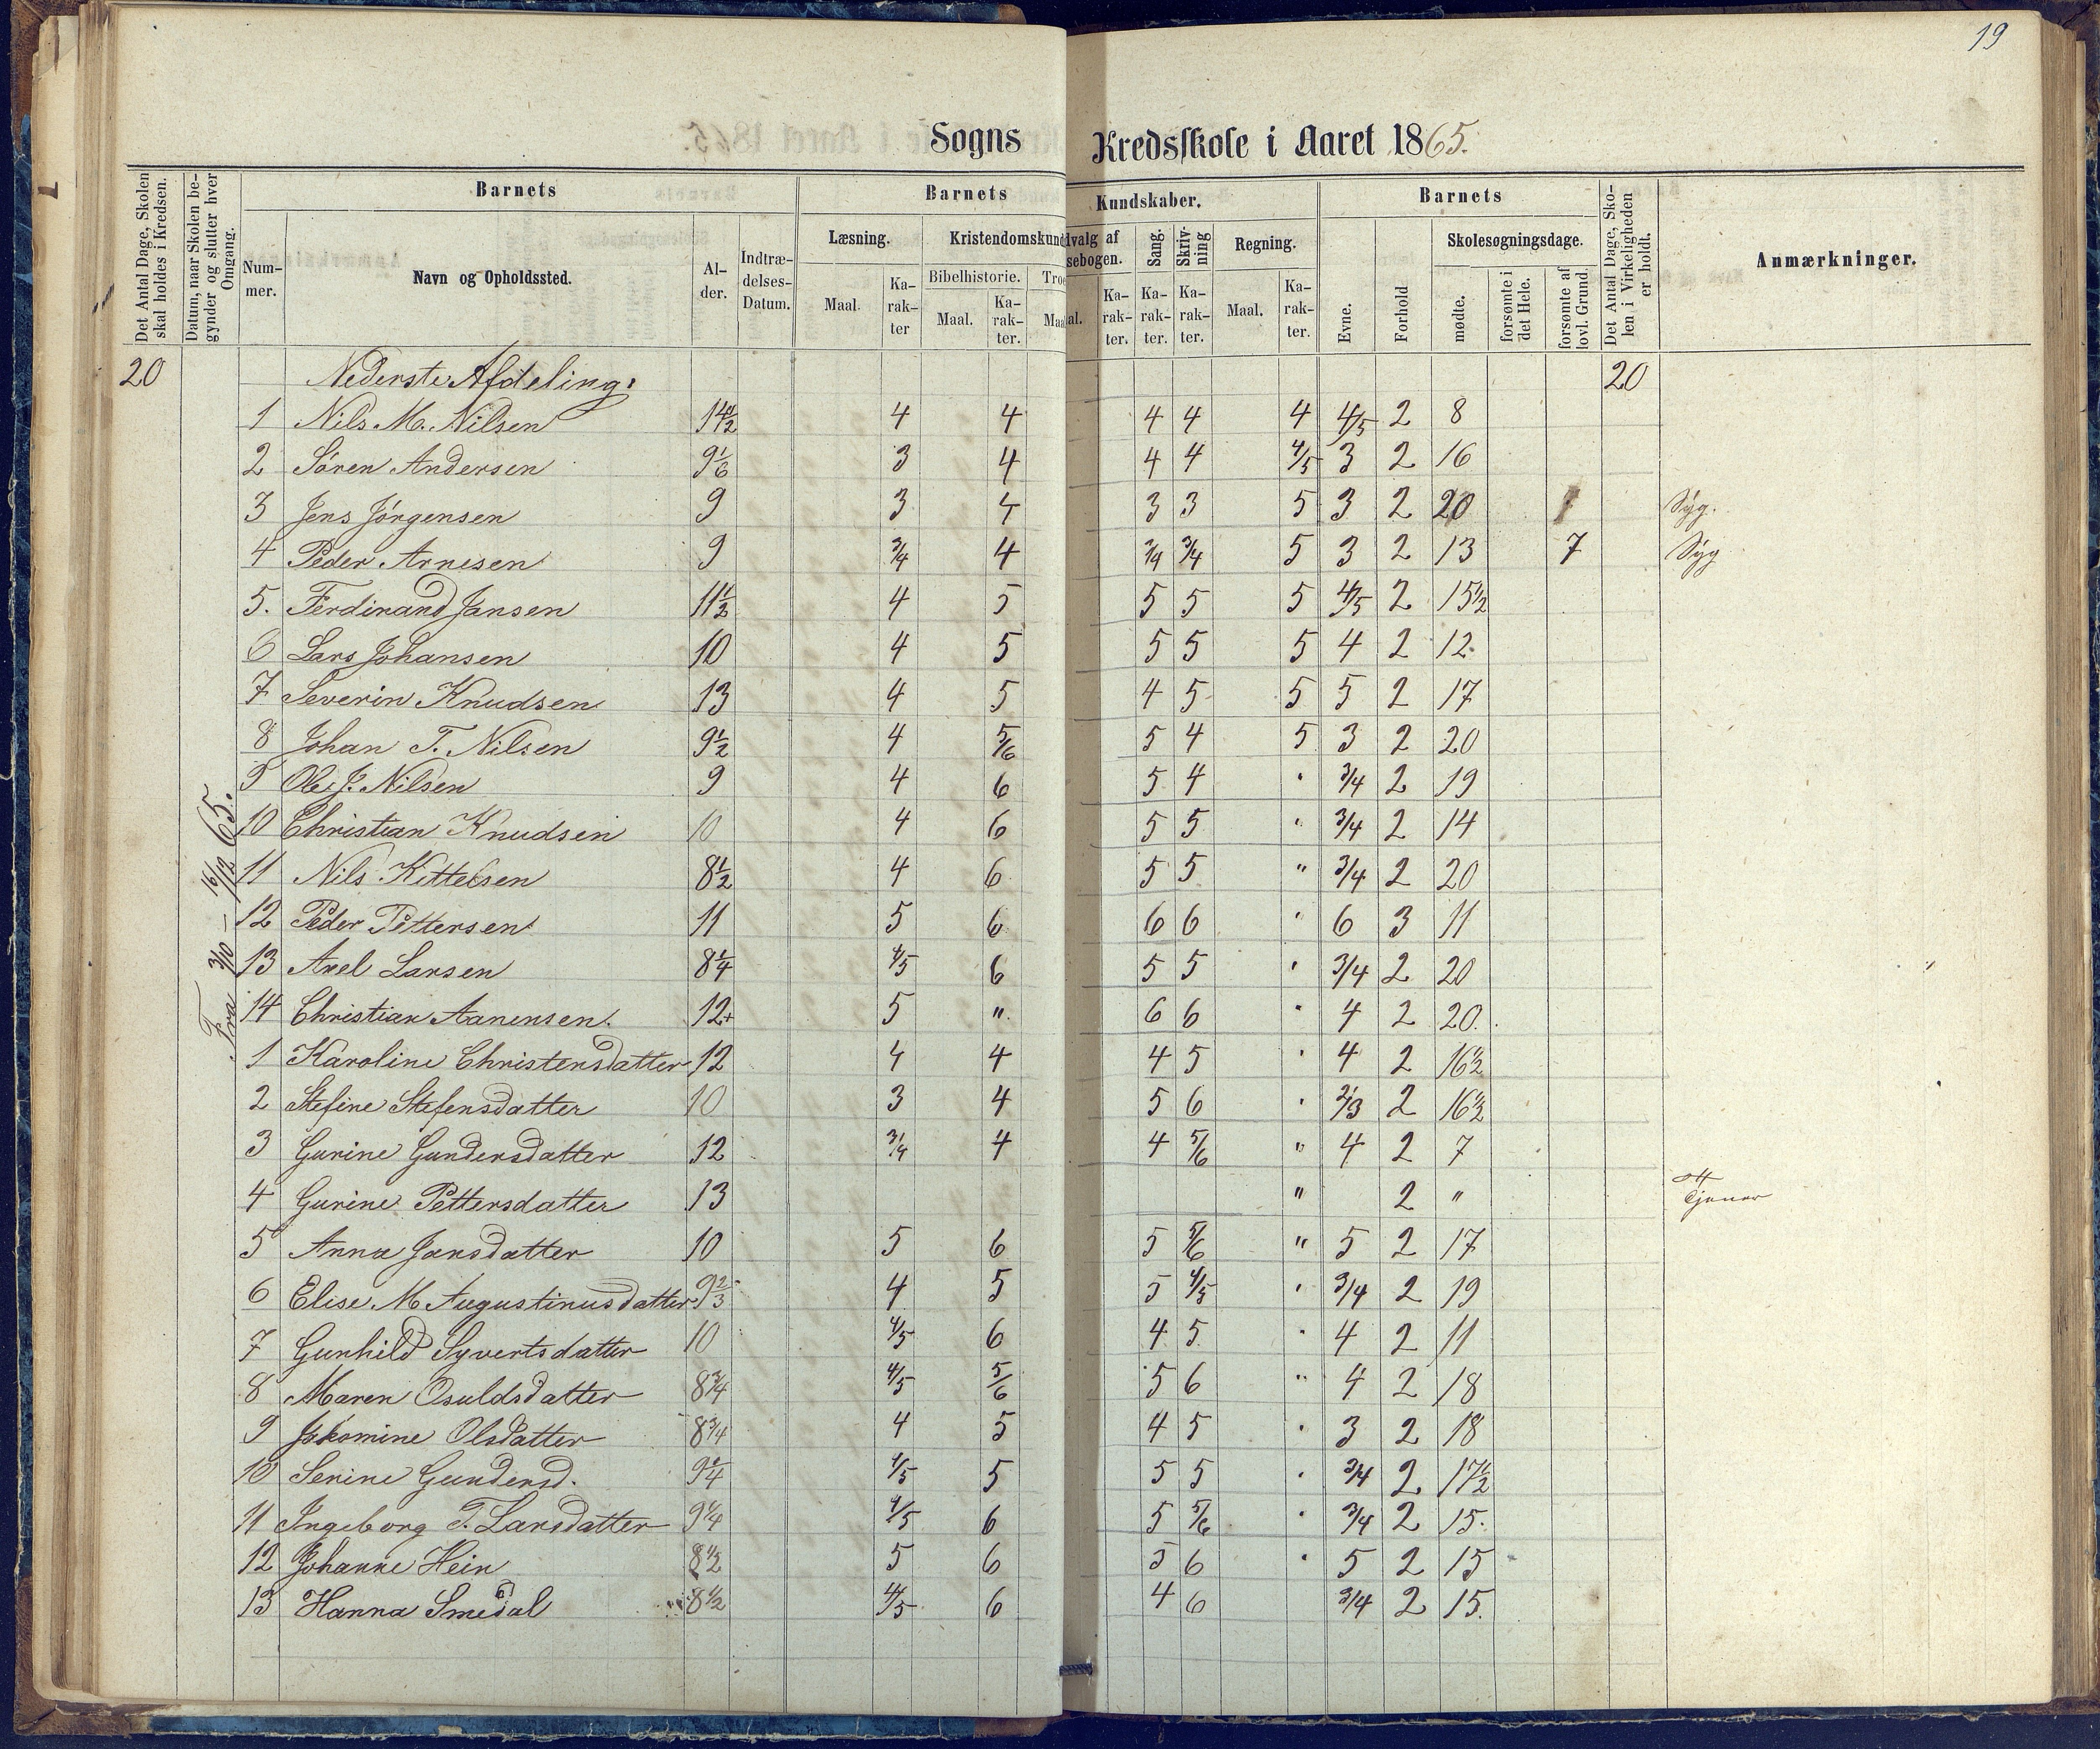 19
Sogns Kredsskole i Aaret 1865.
Det Antal Dage, Skolen skal holdes i Kredsen.
Datum, naar Skolen begynder og slutter hver Omgang.
Barnets
Barnets
Kundskaber.
Barnets
Det Antal Dage, Skolen i Virkeligheden er holdt.
Anmærkninger.
Nummer.
Navn og Opholdssted.
Alder.
Indtrædelses-Datum.
Læsning.
Kristendomskund
dvalg af
sebogen.
Sang.
Skrivning
Regning.
Evne.
Forhold
Skolesøgningsdage.
Maal.
Karakter
Bibelhistorie.
Maal.
Karakter.
Troe
Maal.
Karakter.
Karakter.
Karakter.
Maal.
Karakter.
mødte.
forsømte i det Hele.
forsømte af lovl. Grund.
20 Nederste Afdeling: 20
Fra 3/10 – 16/12 65.
1 Nils M. Nilsen 14 1/2 4 4 4 4 4 4/5 2 8
2 Søren Andersen 9 1/6 3 4 4 4 4/5 3 2 16
3 Jens Jørgensen 9 3 4 3 3 5 3 2 20 Syg.
4 Peder Arnesen 9 3/4 4 3/4 3/4 5 3 2 13 7 Syg
5. Ferdinand Jansen 11 1/2 4 5 5 5 5 4/5 2 15 1/2
6 Lars Johansen 10 4 5 5 5 5 4 2 12
7 Severin Knudsen 13 4 5 4 5 5 5 2 17
8 Johan T. Nilsen 9 1/2 4 5/6 5 4 5 3 2 20
9 Ole J. Nilsen 9 4 6 5 4 " 3/4 2 19
10 Christian Knudsen 10 4 6 5 5 " 3/4 2 14
11 Nils Kittelsen 8 1/2 4 6 5 5 " 3/4 2 20
12 Peder Pettersen 11 5 6 6 6 " 6 3 11
13 Axel Larsen 8 1/4 4/5 6 5 5 " 3/4 2 20
14 Christian Aanensen. 12+ 5 " 6 6 " 4 2 20.
1 Karoline Christensdatter 12 4 4 4 5 " 4 2 16 1/2
2 Stefine Stefensdatter 10 3 4 5 6 " 2/3 2 16 1/2
3 Gurine Gundersdatter 12 3/4 4 4 5/6 " 4 2 7
4 Gurine Pettersdatter 13 " 2 " Tjener
5 Anna Jansdatter 10 5 6 5 5/6 " 5 2 17
6 Elise M Augustinusdatter 9 2/3 4 5 5 4/5 " 3/4 2 19
7 Gunhild Syvertsdatter 10 4/5 6 4 5 " 4 2 11
8 Maren Osuldsdatter 8 3/4 4/5 5/6 5 6 " 4 2 18
9 Jakomine Olsdatter 8 3/4 4 5 4 5 " 3 2 18
10 Serine Gundersd. 9 1/4 4/5 5 5 5 " 3/4 2 17 1/2
11 Ingeborg T. Larsdatter 9 1/4 4/5 6 5 5/6 " 3/4 2 15.
12 Johanne Hein 8 1/2 5 6 5 6 " 5 2 15
13 Hanna Smedal 8 1/2 4/5 6 4 6 3/4 2 15.